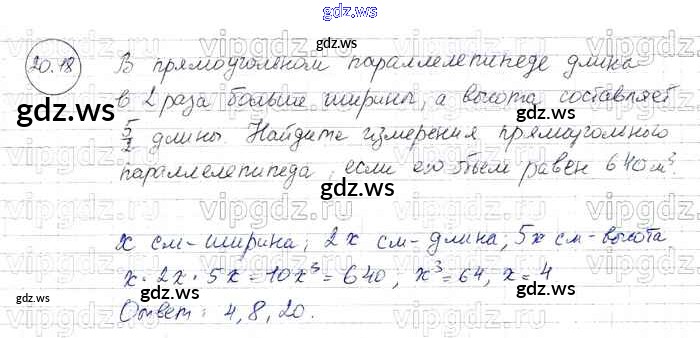 gdz.ws
20.18 В прямоугольном параллелепипеде длина
в 2 раза больше ширины, а высота составляет
5/2 длины. Найдите измерения прямоугольного
параллелепипеда, если его объем равен 640 м³.
gdz.ws
gdz.ws
gdz.ws
x см-ширина; 2x см-длина; 5x см-высота
x · 2x · 5x = 10x³ = 640; x³ = 64, x = 4
gdz.ws
gdz.ws
Ответ: 4, 8, 20.
gdz.ws
vipgdz.ws